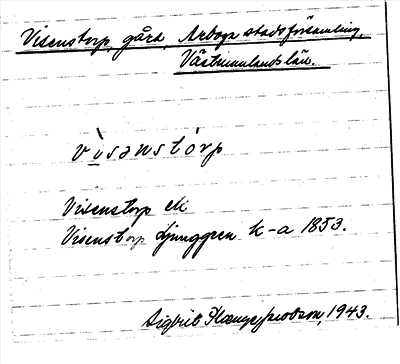 Visenstorp, gård, Arboga stadsförsamling,
Västmanlands län.
v ì s ə n s t ó r p
Visenstorp ek
Visenstorp Ljunggren k-a 1853.
Sigbrit 1943.